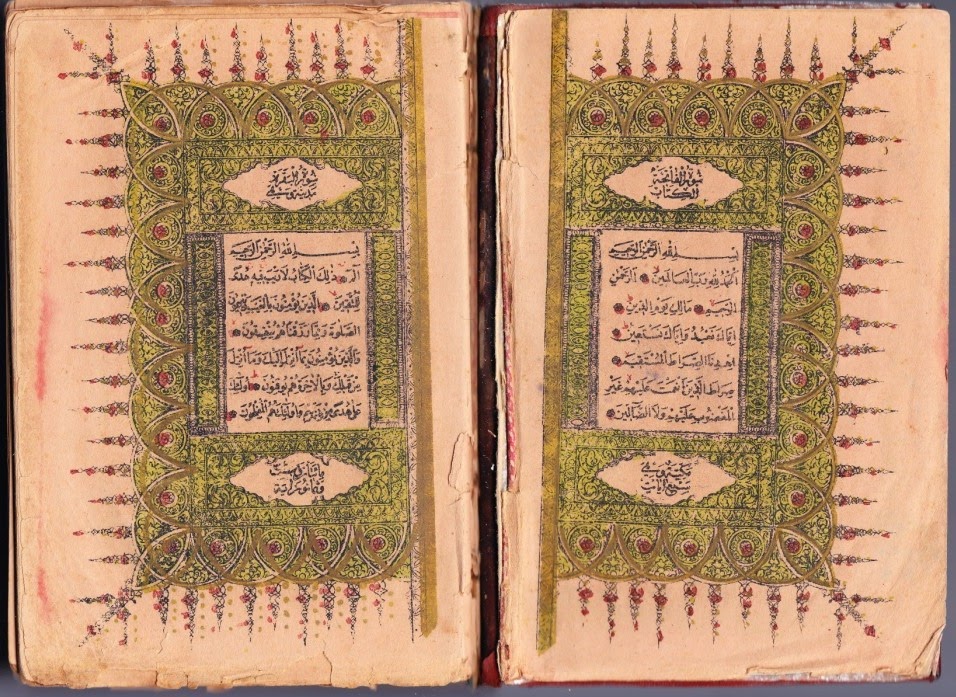 سورة الفاتحة
الكتاب
بسم الله الرحمن الرحيم
الحمد لله رب العالمين الرحمن
الرحيم مالك يوم الدين
اياك نعبد واياك نستعين
اهدنا الصراط المستقيم
صراط الذين انعمت عليهم غير
المغضوب عليهم ولا الضالين
مكية وهي
سبع ايات
سورة البقرة
مدنية وهي
بسم الله الرحمن الرحيم
الم ذلك الكتاب لا ريب فيه هدى
للمتقين الذين يؤمنون بالغيب ويقيمون
الصلوة ومما رزقناهم ينفقون
والذين يؤمنون بما انزل اليك وما انزل
من قبلك وبالاخرة هم يوقنون اولئك
على هدى من ربهم واولئك هم المفلحون
مائتان وست